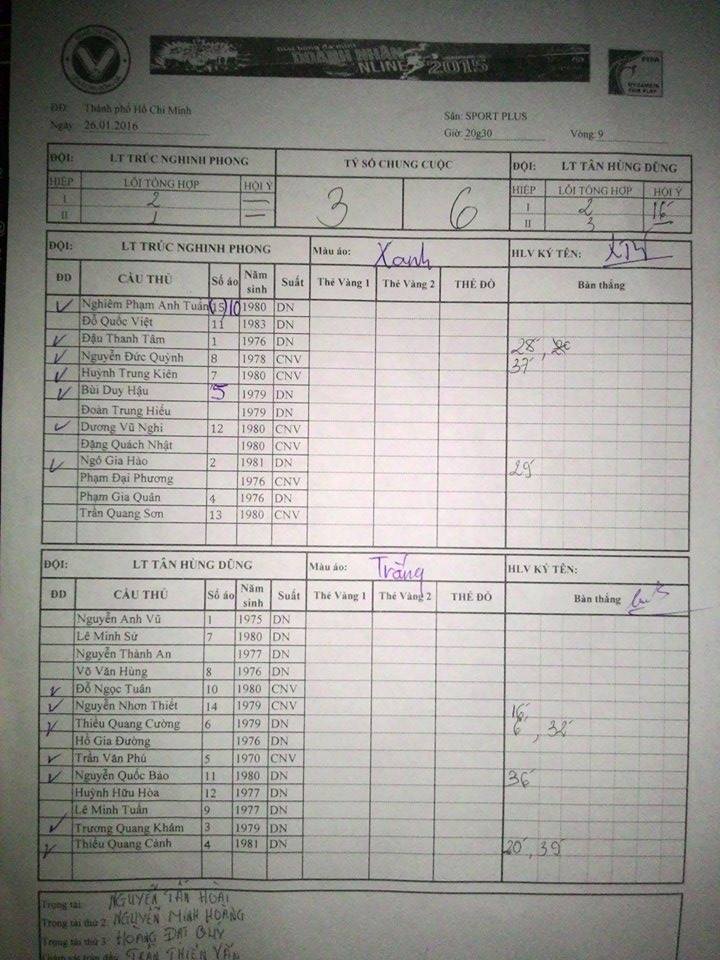 DOANH NHÂN
NLINE 2015
FIFA
MY GAME IS
FAIR PLAY
ĐĐ: Thành phố Hồ Chí Minh
Sân: SPORT PLUS
Ngày: 26.01.2016
Giờ: 20g30 Vòng: 9
ĐỘI: LT TRÚC NGHINH PHONG TỶ SỐ CHUNG CUỘC ĐỘI: LT TÂN HÙNG DŨNG
HIỆP LỖI TỔNG HỢP HỘI Ý 3 6 HIỆP LỖI TỔNG HỢP HỘI Ý
I 2 — I 2 16'
II 1 — II 3
ĐỘI: LT TRÚC NGHINH PHONG Màu áo: Xanh HLV KÝ TÊN:
ĐD CẦU THỦ Số áo Năm sinh Suất Thẻ Vàng 1 Thẻ Vàng 2 THẺ ĐỎ Bàn thắng
✓ Nghiêm Phạm Anh Tuấn (15) 10 1980 DN
Đỗ Quốc Việt 11 1983 DN
✓ Đậu Thanh Tâm 1 1976 DN
✓ Nguyễn Đức Quỳnh 8 1978 CNV 28',
37'
✓ Huỳnh Trung Kiên 7 1980 CNV
✓ Bùi Duy Hậu 5 1979 DN
Đoàn Trung Hiếu 1979 DN
✓ Dương Vũ Nghi 12 1980 CNV
Đặng Quách Nhật 1980 CNV
✓ Ngô Gia Hào 2 1981 DN 29'
Phạm Đại Phương 1976 CNV
Phạm Gia Quân 4 1976 DN
Trần Quang Sơn 13 1980 CNV
ĐỘI: LT TÂN HÙNG DŨNG Màu áo: Trắng HLV KÝ TÊN:
ĐD CẦU THỦ Số áo Năm sinh Suất Thẻ Vàng 1 Thẻ Vàng 2 THẺ ĐỎ Bàn thắng
Nguyễn Anh Vũ 1 1975 DN
Lê Minh Sử 7 1980 DN
Nguyễn Thành An 1977 DN
Võ Văn Hùng 8 1976 DN
✓ Đỗ Ngọc Tuấn 10 1980 CNV
✓ Nguyễn Nhơn Thiết 14 1979 CNV 16'
✓ Thiều Quang Cường 6 1979 DN 6', 32'
Hồ Gia Đường 1976 DN
✓ Trần Văn Phú 5 1970 CNV
✓ Nguyễn Quốc Bảo 11 1980 DN 36'
Huỳnh Hữu Hòa 12 1977 DN
Lê Minh Tuấn 9 1977 DN
✓ Trương Quang Khám 3 1979 DN
✓ Thiều Quang Cảnh 4 1981 DN 20', 39'
Trọng tài: NGUYỄN TẤN HOÀI
Trọng tài thứ 2: NGUYỄN MINH HOÀNG
Trọng tài thứ 3: HOÀNG ĐẠT
TRẦN THIÊN VĂN